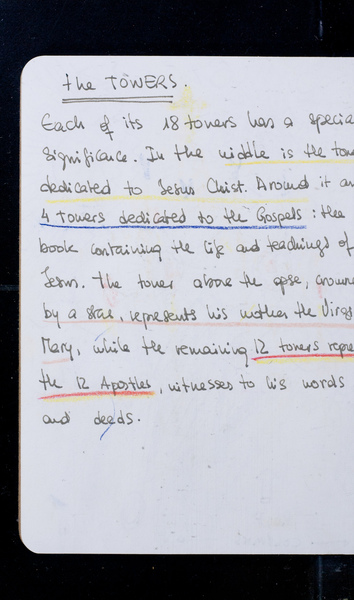 the TOWERS.
Each of its 18 towers has a specia
significance. In the middle is the tow
dedicated to Jesus Christ. Around it ar
4 towers dedicated to the Gospels: the
book containing the life and teachings of
Jesus. The tower above the apse, crowne
by a star, represents his mother the Virgi
Mary, while the remaining 12 towers repre
the 12 Apostles, witnesses to his words
and deeds.